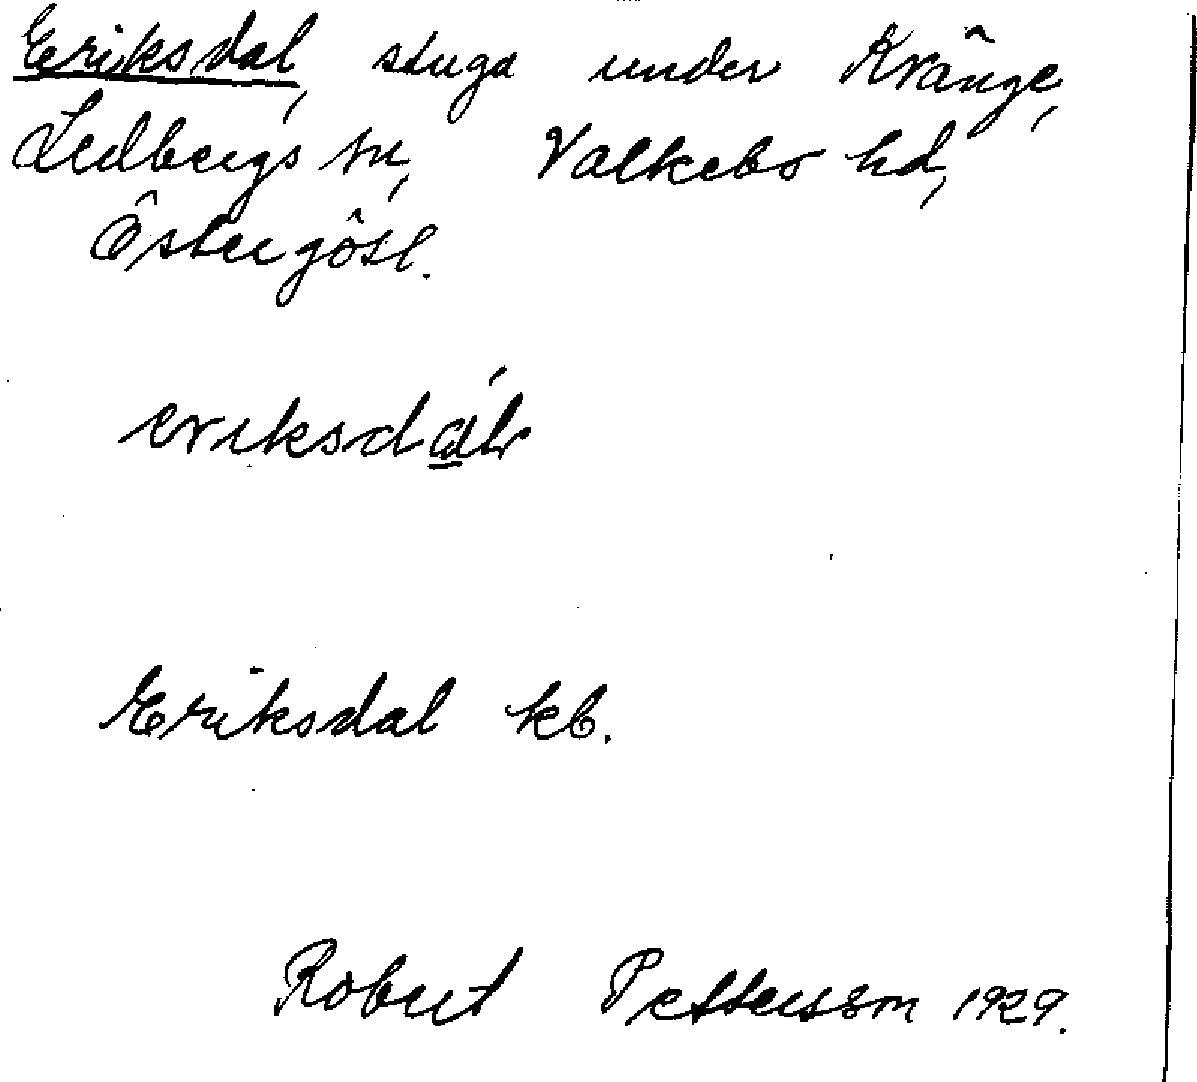 Eriksdal, stuga under Kränge,
Ledbergs sn, Valkebo hd,
Östergötl.
eriksdál
Eriksdal kb.
Robert Pettersson 1929.